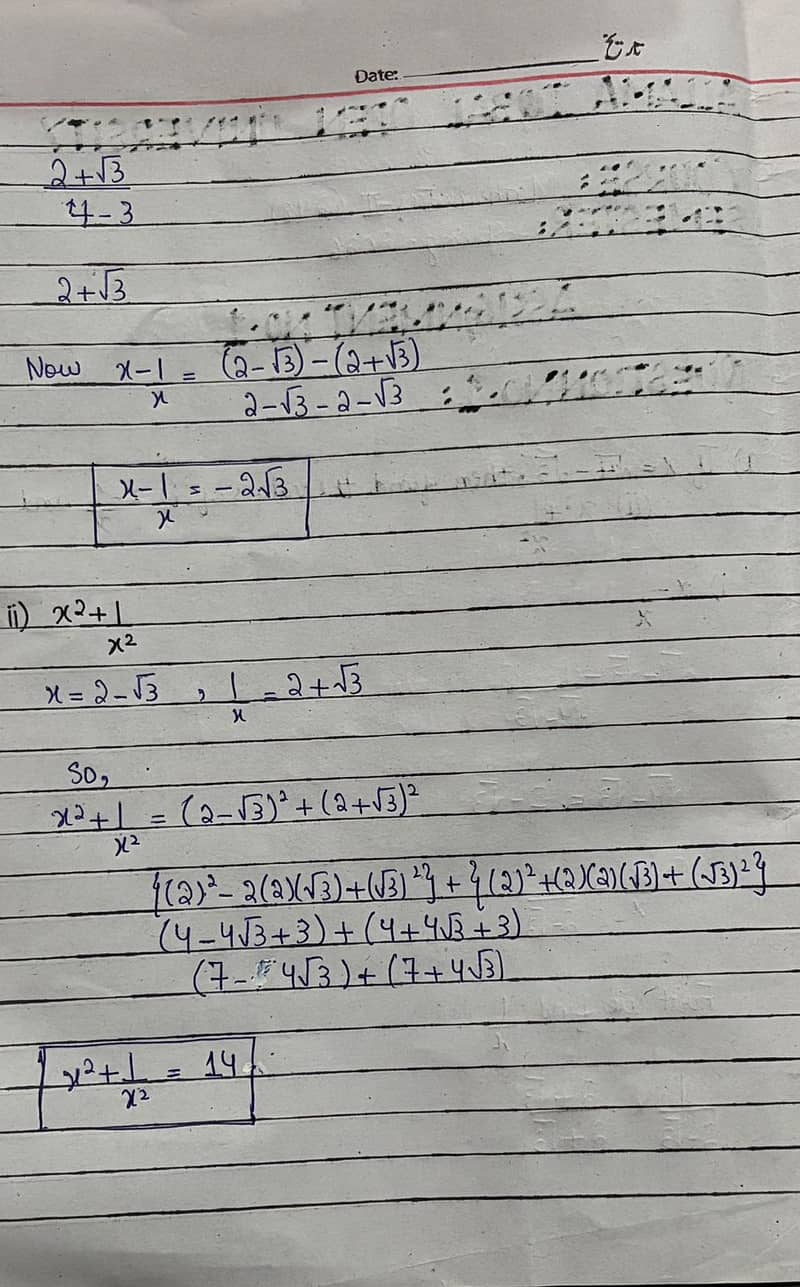 Date:
2+√3
4-3
2+√3
Now x-1/x = (2-√3)-(2+√3)
2-√3-2-√3
x-1/x = -2√3
ii) x²+1/x²
x=2-√3 , 1/x = 2+√3
So,
x²+1/x² = (2-√3)²+(2+√3)²
{(2)²-2(2)(√3)+(√3)²}+{(2)²+(2)(2)(√3)+(√3)²}
(4-4√3+3)+(4+4√3+3)
(7-4√3)+(7+4√3)
x²+1/x² = 14